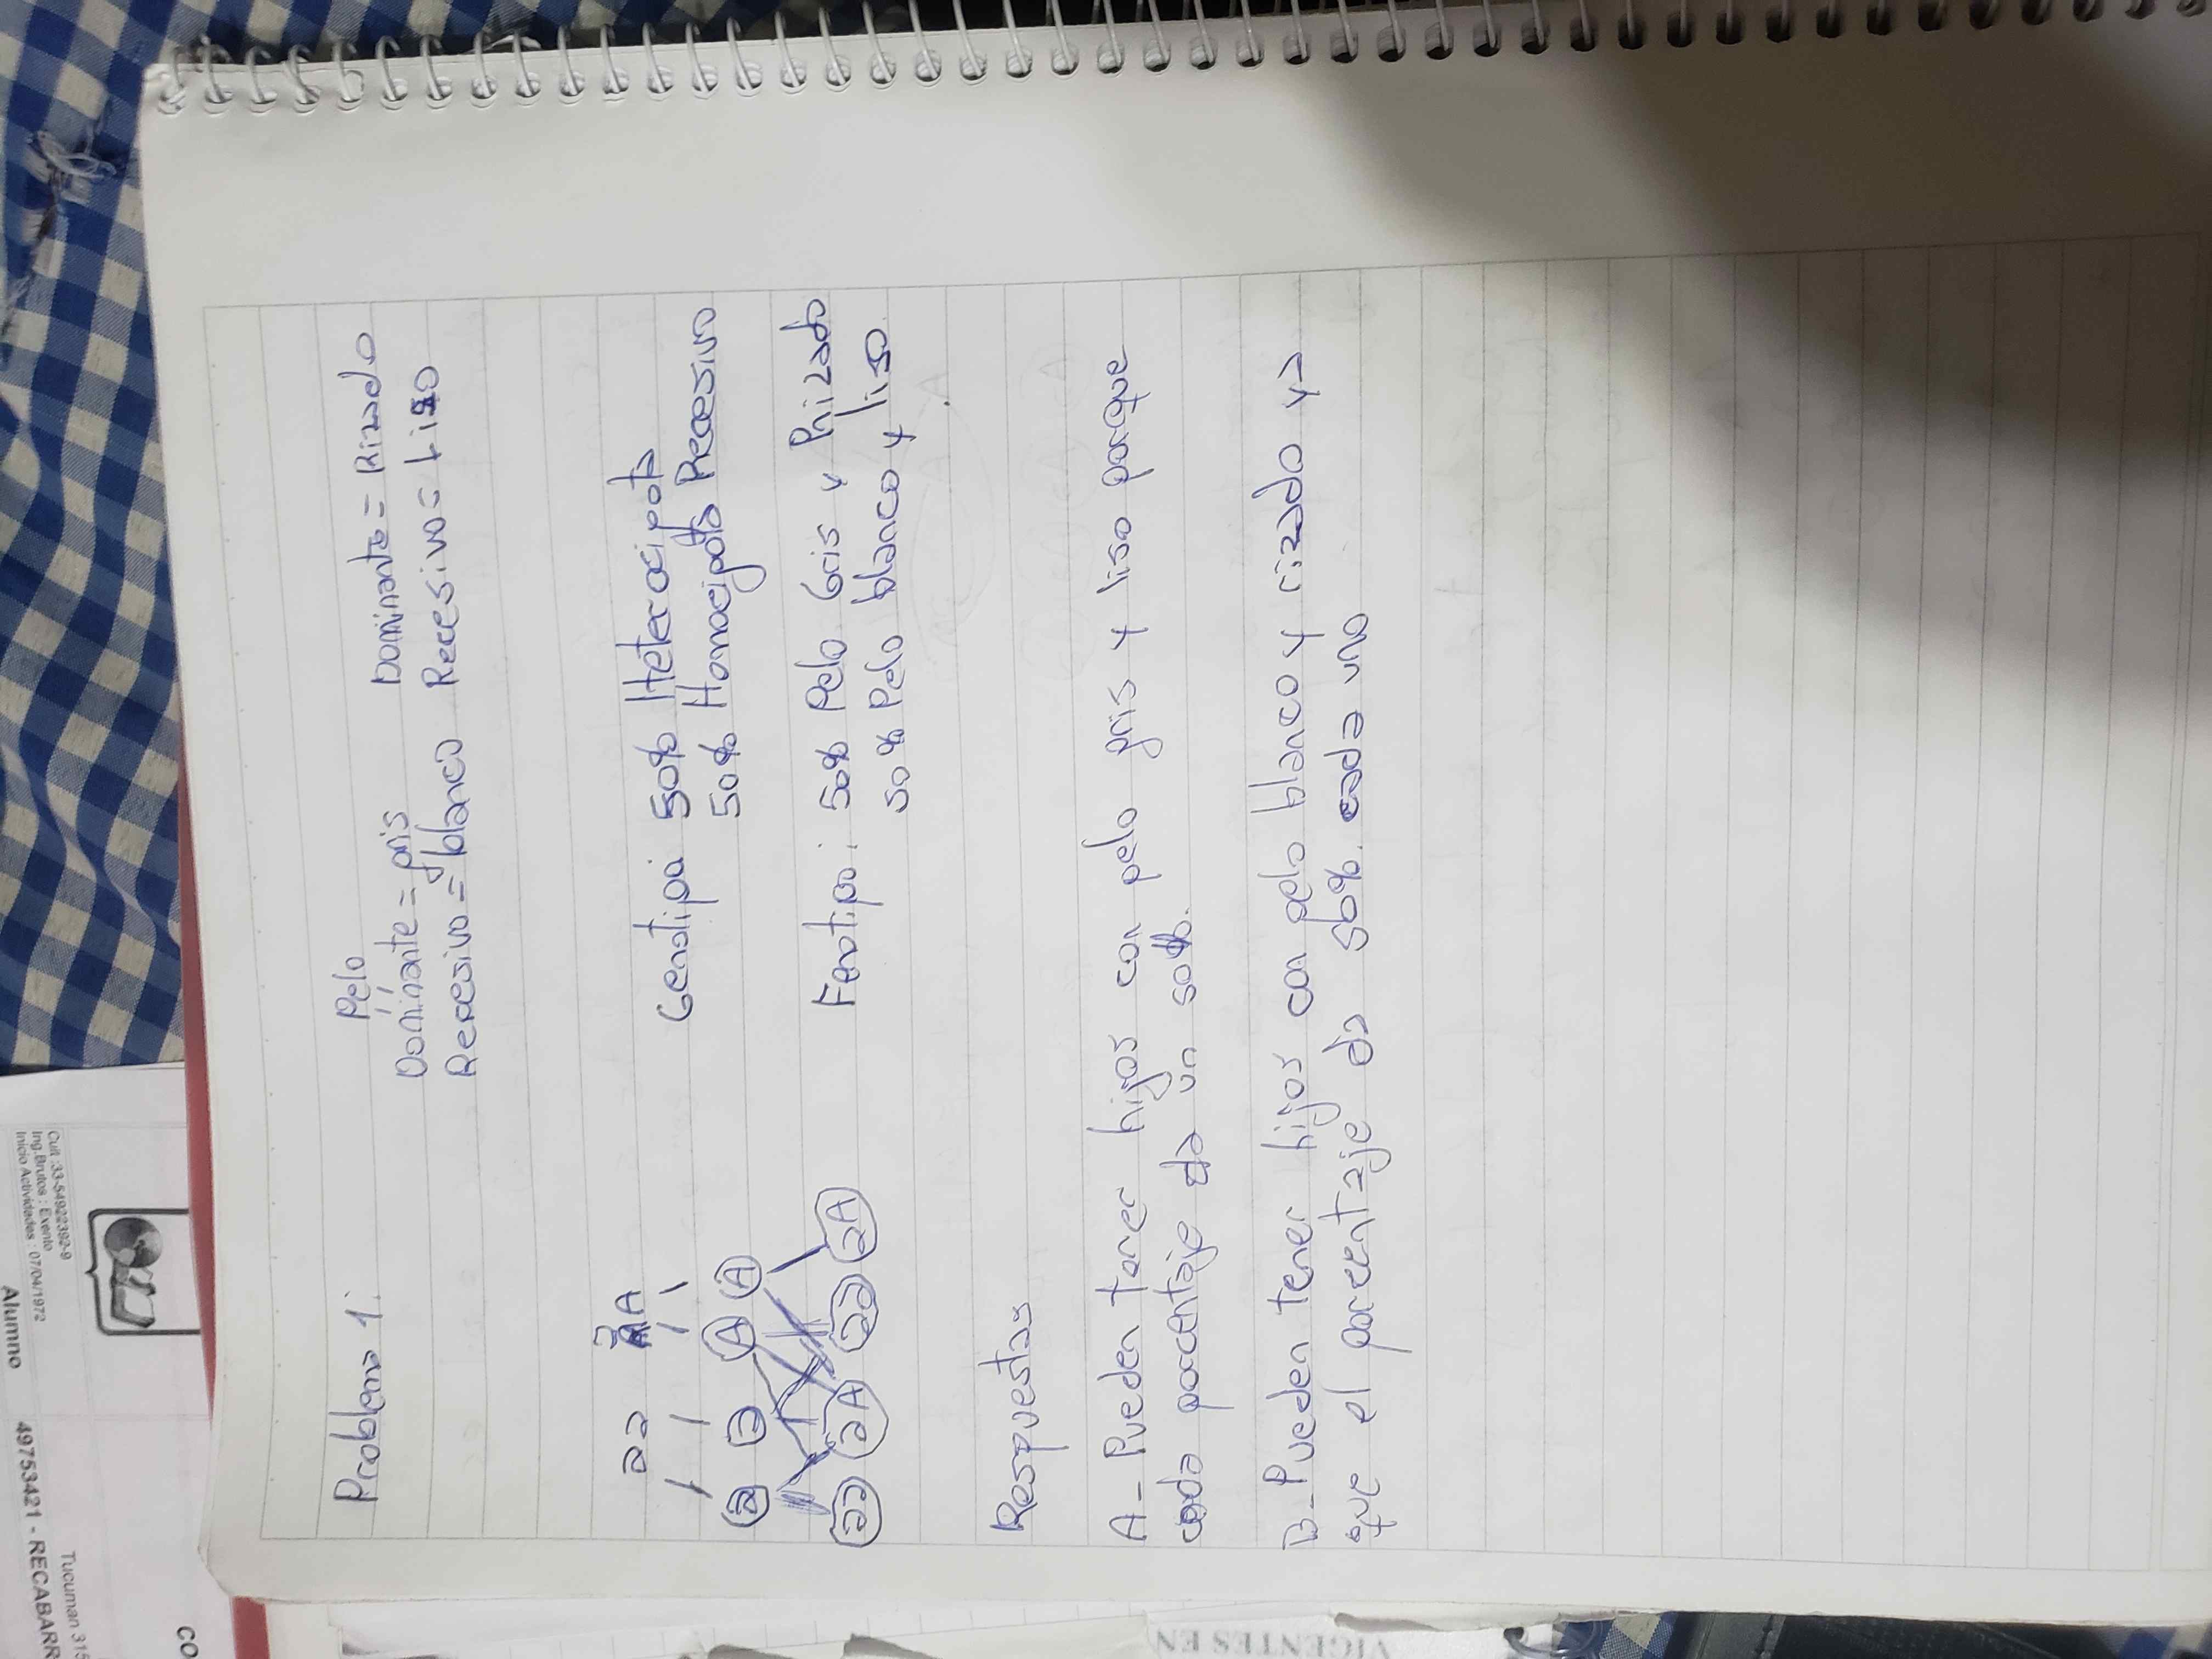 Problema 1:
Pelo
Dominante = gris
Recesivo = blanco
Dominante = Rizado
Recesivo = Liso
aa
aA
a a A A
aa aA aa aA
Genotipo: 50% Heterocipota
50% Homocigoto Recesivo
Fenotipo: 50% Pelo Gris y Rhizado
50% Pelo blanco y liso
Respuestas
A - Pueden tener hijos con pelo gris y liso porque
cada porcentaje da un 50%.
B - Pueden tener hijos con pelo blanco y rizado ya
que el porcentaje da 50% cada uno
Cuit :33-54922392-9
Ing.Brutos : Exento
Inicio Actividades : 07/04/1972
Alumno
49753421 - RECABARR
Tucuman 315
CO
VIGENTES EN